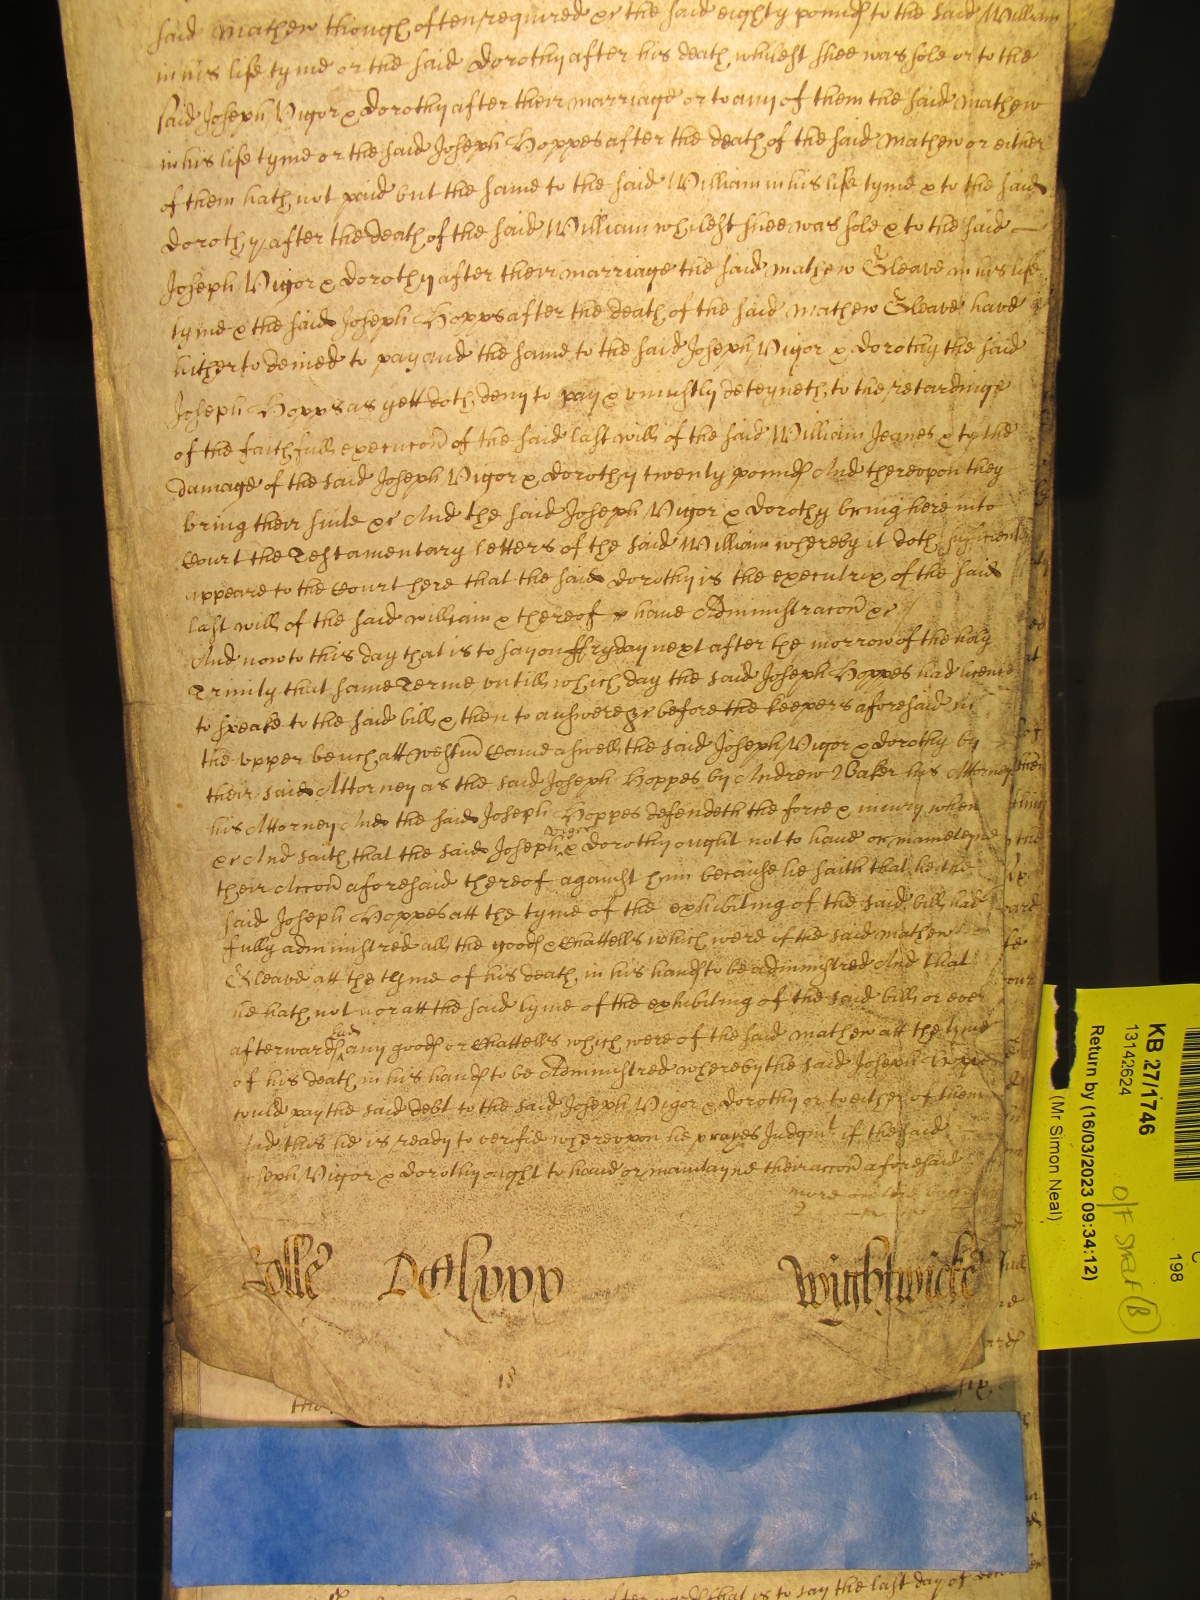 said Mathew though often required &c the said eighty pounds to the said William
in his life tyme or the said Dorothy after his death whilest shee was sole or to the
said Joseph Vigor & Dorothy after their marriage or to any of them the said Mathew
in his life tyme or the said Joseph Hoppes after the death of the said Mathew or either
of them hath not paid but the same to the said William in his life tyme & to the said
Dorothy after the death of the said William whilest shee was sole & to the said
Joseph Vigor & Dorothy after their marriage the said Mathew Gleave in his life
tyme & the said Joseph Hopps after the death of the said Mathew Gleave have
hitherto denied to pay and the same to the said Joseph Vigor & Dorothy the said
Joseph Hopps as yett doth deny to pay & uniustly deteyneth to the retardinge
of the faithfull execucon of the said last will of the said William Jeanes & to the
damage of the said Joseph Vigor & Dorothy twenty pounds And thereupon they
bring their suite &c And the said Joseph Vigor & Dorothy bring here into
Court the Testamentary letters of the said William whereby it doth sufficiently
appeare to the Court here that the said Dorothy is the executrix of the said
last will of the said William & thereof & have Administracon &c
And now to this day that is to say on ffryday next after the morrow of the holy
Trinity that same Terme untill which day the said Joseph Hoppes had licence
to speake to the said bill & then to answere &c before the keepers aforesaid in
the upper bench att Westm Came aswell the said Joseph Vigor & Dorothy by
their said Attorney as the said Joseph Hoppes by Andrew Baker his Attorney
his Attorney And the said Joseph Hoppes defendeth the force & iniury when
&c And saith that the said Joseph Vigor & Dorothy ought not to have or mainteyne
their Accon aforesaid thereof against him because he saith that he the
said Joseph Hoppes att the tyme of the exhibiting of the said bill had
fully administred all the goods & Chattells which were of the said Mathew
Gleave att the tyme of his death in his hands to be administred And that
he hath not nor att the said tyme of the exhibiting of the said bill or ever
afterwards had any goods or Chattells which were of the said Mathew att the tyme
of his death in his hands to be Administred whereby the said Joseph Hoppes
could pay the said debt to the said Joseph Vigor & Dorothy or to either of them
And this he is ready to verifie whereupon he prayes Judgmt if the said
Joseph Vigor & Dorothy ought to have or maintayne their accon aforesaid
more on the
Rolle
Wightwicke
18
that is to say the last day of
KB 27/1746
13142624
Return by (16/03/2023 09:34:12)
(Mr Simon Neal)
198
O/F Start (B)